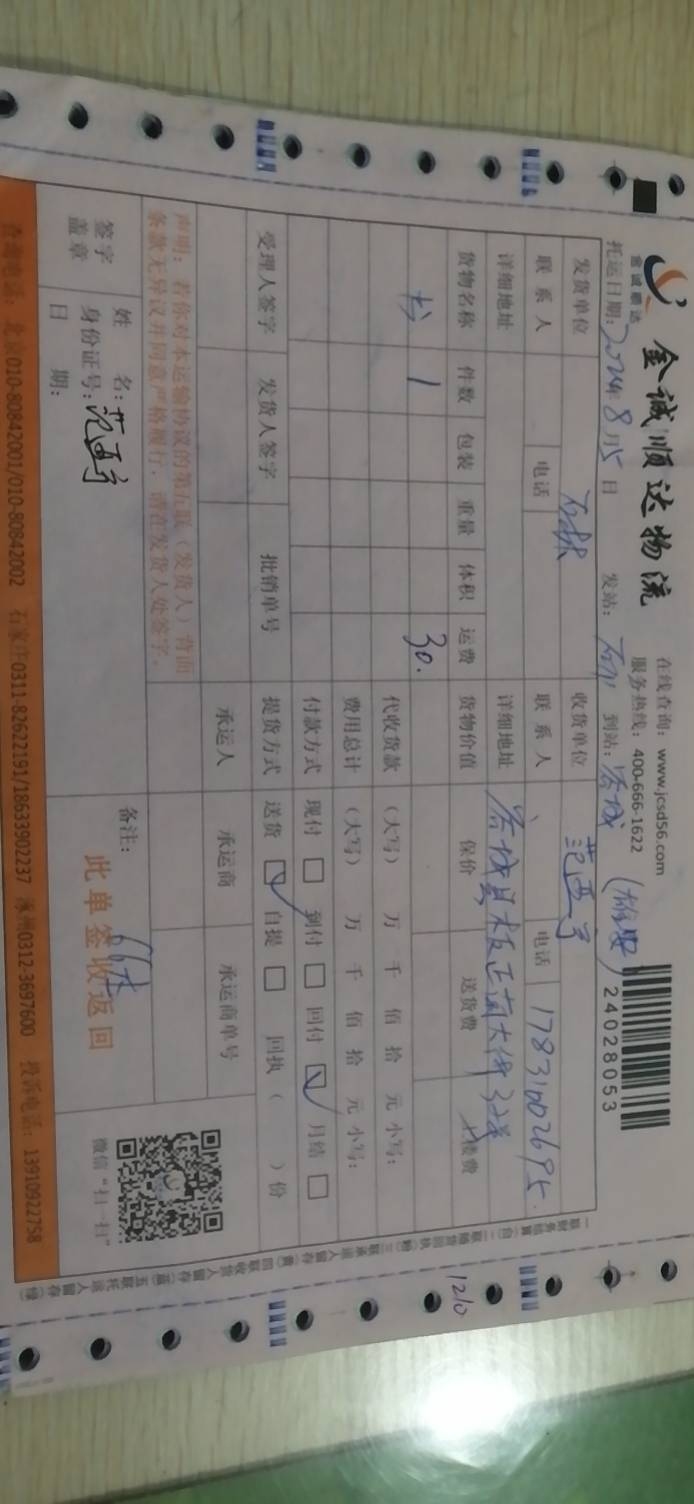 金诚顺达
金诚顺达物流
在线查询：www.jcsd56.com
服务热线：400-666-1622
24028053
托运日期：2024年8月5日 发站： 到站：容城（雄安）
发货单位 收货单位 范西子
联系人 电话 联系人 电话 17831002695.
详细地址 详细地址 容城县板正南大街32号
货物名称 件数 包装 重量 体积 运费 货物价值 保价 送货费 上楼费
1 30.
代收货款（大写） 万 千 佰 拾 元 小写：
费用总计（大写） 万 千 佰 拾 元 小写：
付款方式 现付 到付 回付 月结
受理人签字 发货人签字 批销单号 提货方式 送货 自提 回执（ ）份
承运人 承运商 承运商单号
声明：若你对本运输协议的第五联（发货人）背面
条款无异议并同意严格履行，请在发货人处签字。
签字
盖章
姓 名：
身份证号：
日 期：
备注：
此单签收返回
微信“扫一扫”
1210
查询电话：北京010-80842001/010-80842002 石家庄0311-82622191/18633902237 涿州0312-3697600 投诉电话：13910922758